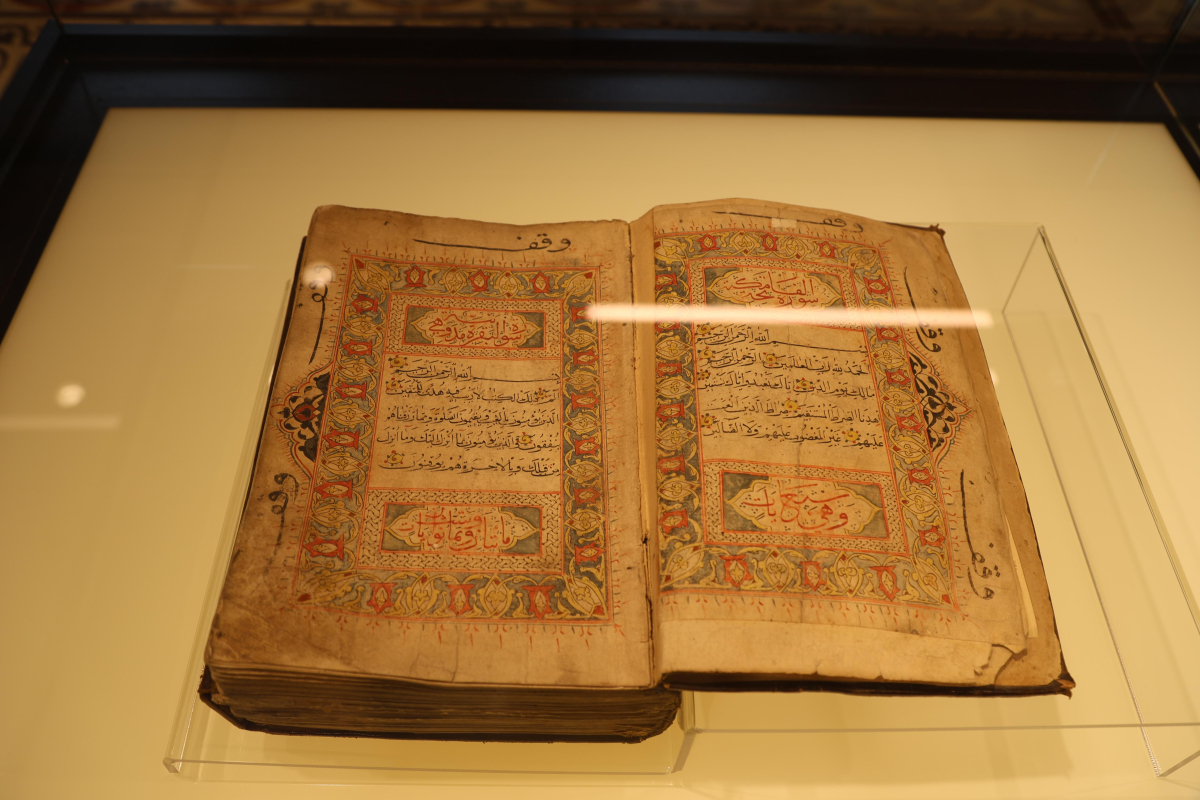 وقف
سورة الفاتحة مكية
بسم الله الرحمن الرحيم
الحمد لله رب العالمين الرحمن الرحيم
مالك يوم الدين اياك نعبد واياك نستعين
اهدنا الصراط المستقيم صراط الذين انعمت
عليهم غير المغضوب عليهم ولا الضالين
وهي سبع ايات
وقف
وقف
وقف
سورة البقرة مدنية وهي
بسم الله الرحمن الرحيم
الم ذلك الكتاب لا ريب فيه هدى للمتقين
الذين يؤمنون بالغيب ويقيمون الصلوة ومما رزقناهم
ينفقون والذين يؤمنون بما انزل اليك وما انزل
من قبلك وبالاخرة هم يوقنون
مائتان وست وثمانون اية
وقف
وقف